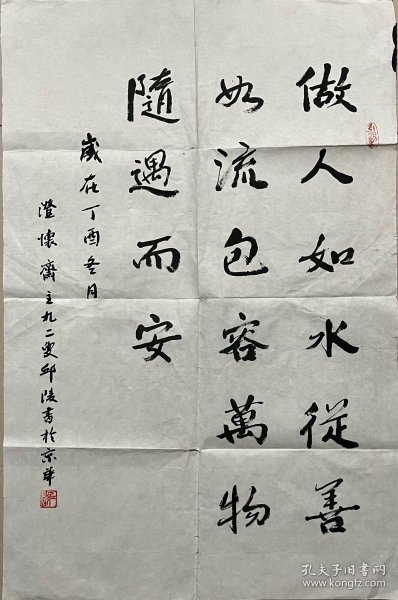 做人如水從善
如流包容萬物
隨遇而安
歲在丁酉冬月
澄懷齋主九二叟邱陵書於京華
孔夫子旧书网
www.kongfz.com